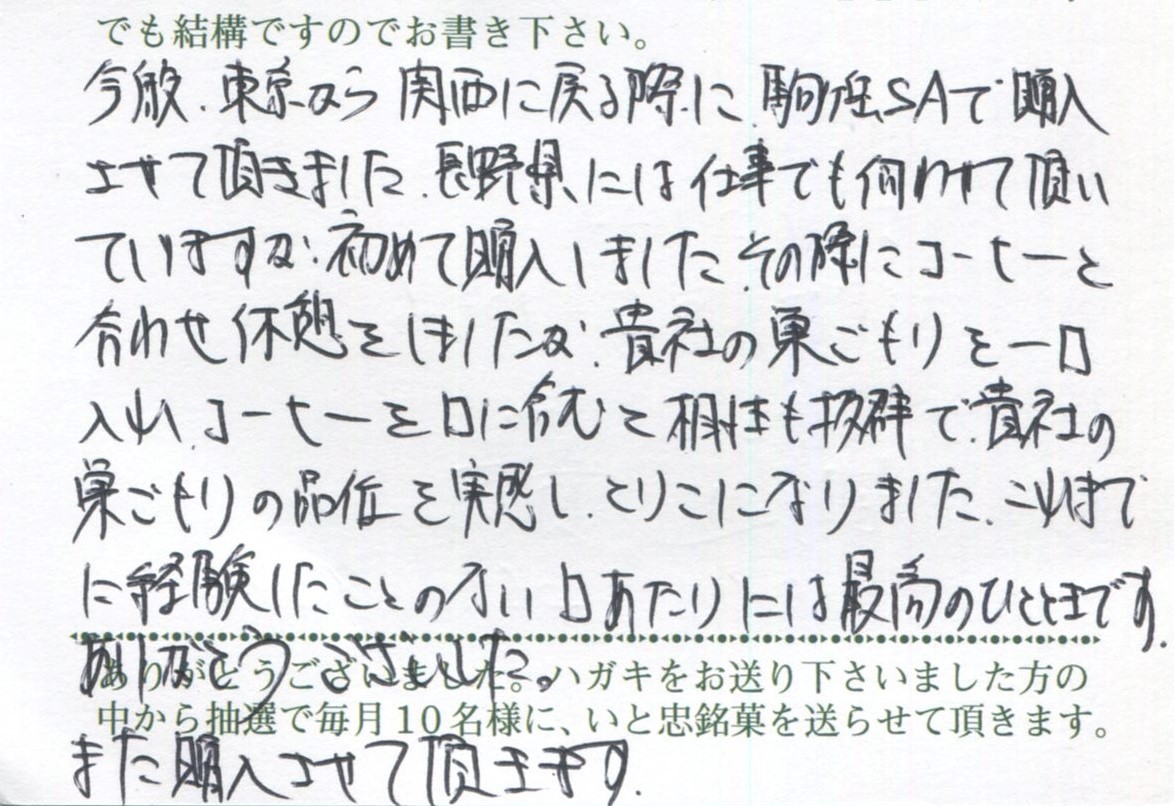 でも結構ですのでお書き下さい。
今般、東京から関西に戻る際に、駒ヶ岳SAで購入
させて頂きました。長野県には仕事でも伺わせて頂い
ていますが、初めて購入しました。その際にコーヒーと
合わせ休憩をしましたが、貴社の巣ごもりを一口
入れ、コーヒーを口に含むと相性も抜群で、貴社の
巣ごもりの品位を実感し、とりこになりました。これまで
に経験したことのない口あたりには最高のひとときです。
ありがとうございました。
ありがとうございました。ハガキをお送り下さいました方の
中から抽選で毎月10名様に、いと忠銘菓を送らせて頂きます。
また購入させて頂きます。